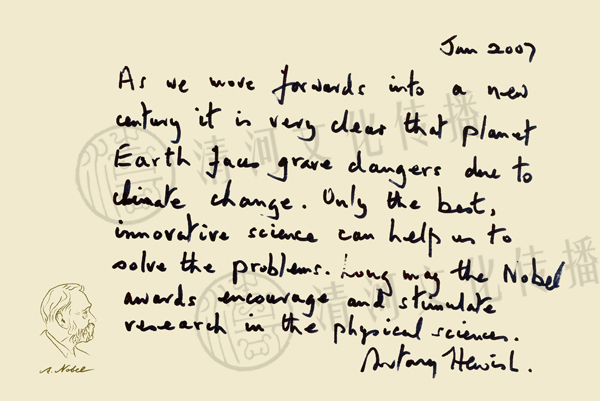 Jan 2007
As we move forwards into a new
century it is very clear that planet
Earth faces grave dangers due to
climate change. Only the best,
innovative science can help us to
solve the problems. Long may the Nobel
awards encourage and stimulate
research in the physical sciences.
Antony Hewish.
A. Nobel
清河文化传播
清河文化传播